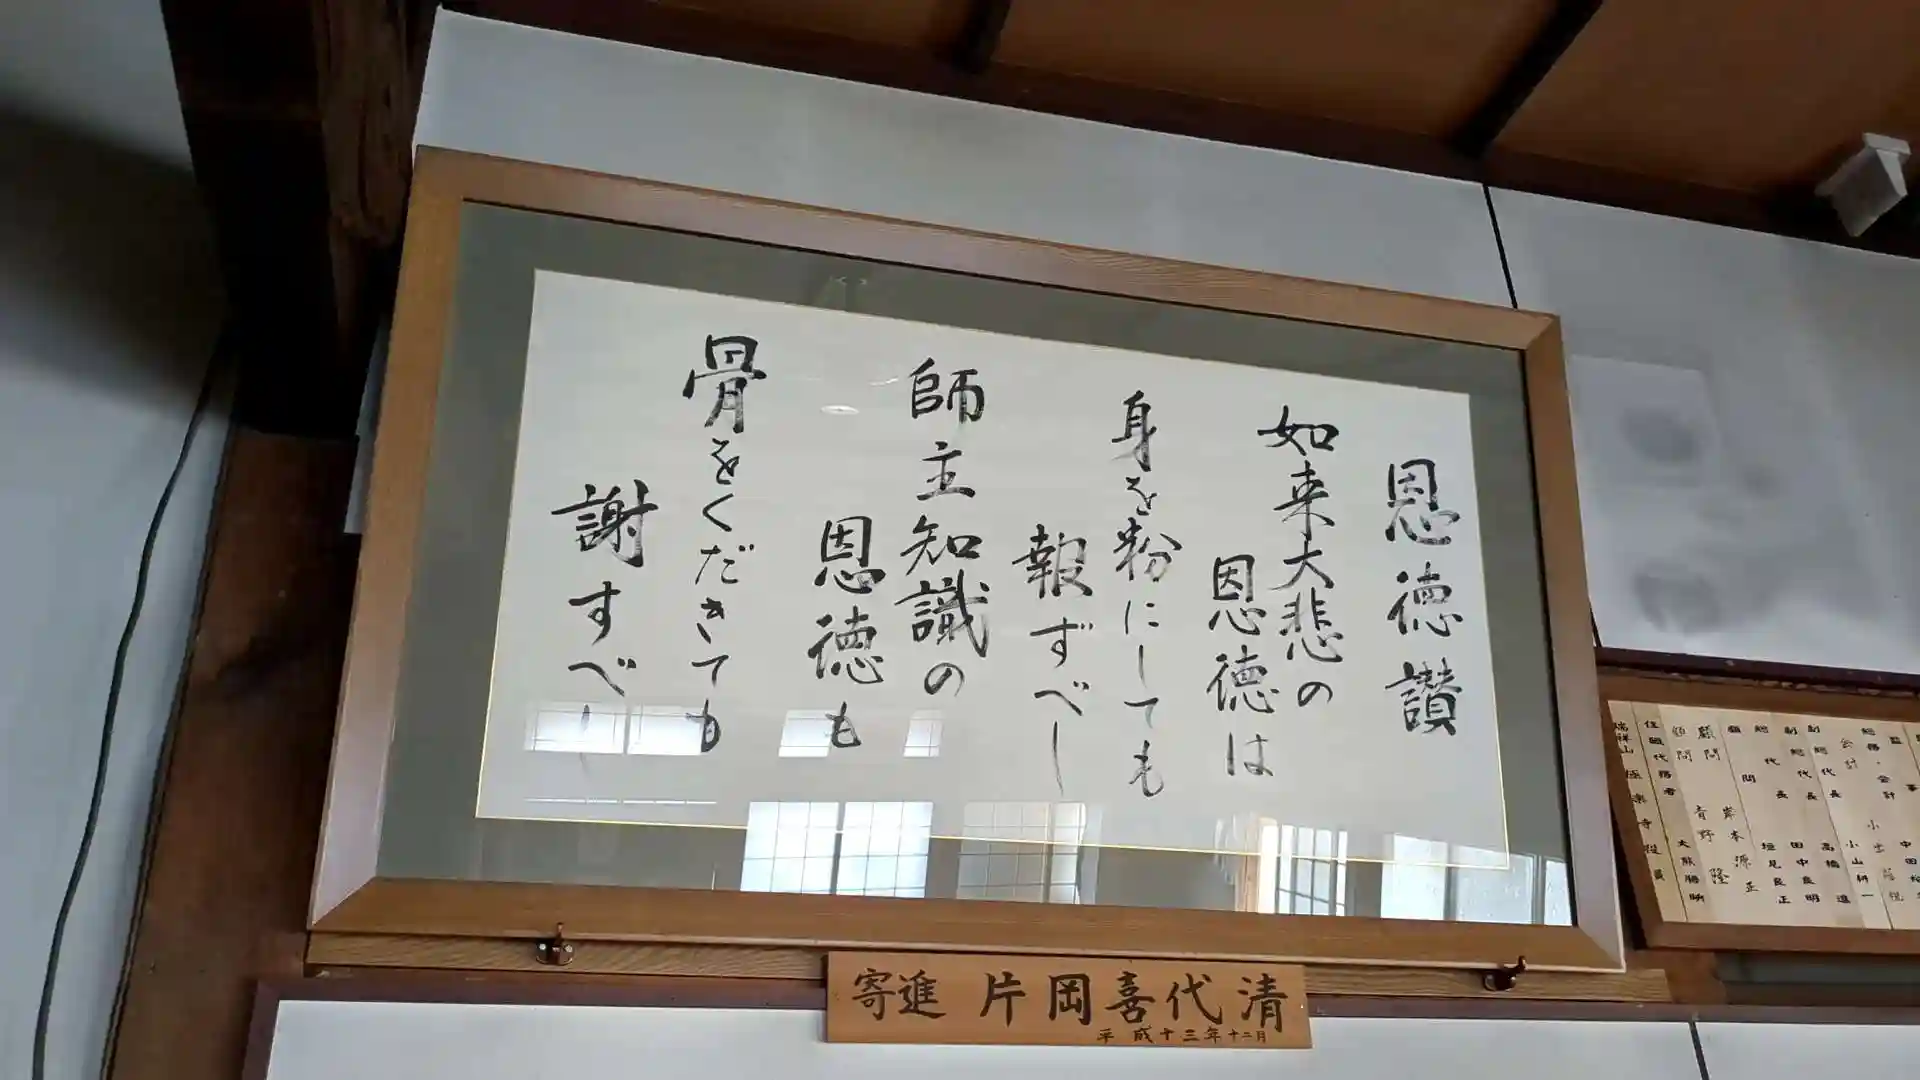 恩徳讃
如来大悲の
恩徳は
身を粉にしても
報ずべし
師主知識の
恩徳も
骨をくだきても
謝すべし
寄進 片岡喜代清
平成十三年十二月
監事
総務・会計
会計 小山耕一
副総代長 高橋進
副総代長 田中良明
総代長 垣見良正
顧問 岸本源正
顧問 青野隆
住職代務者 大熊勝映
瑞祥山 極楽寺役員